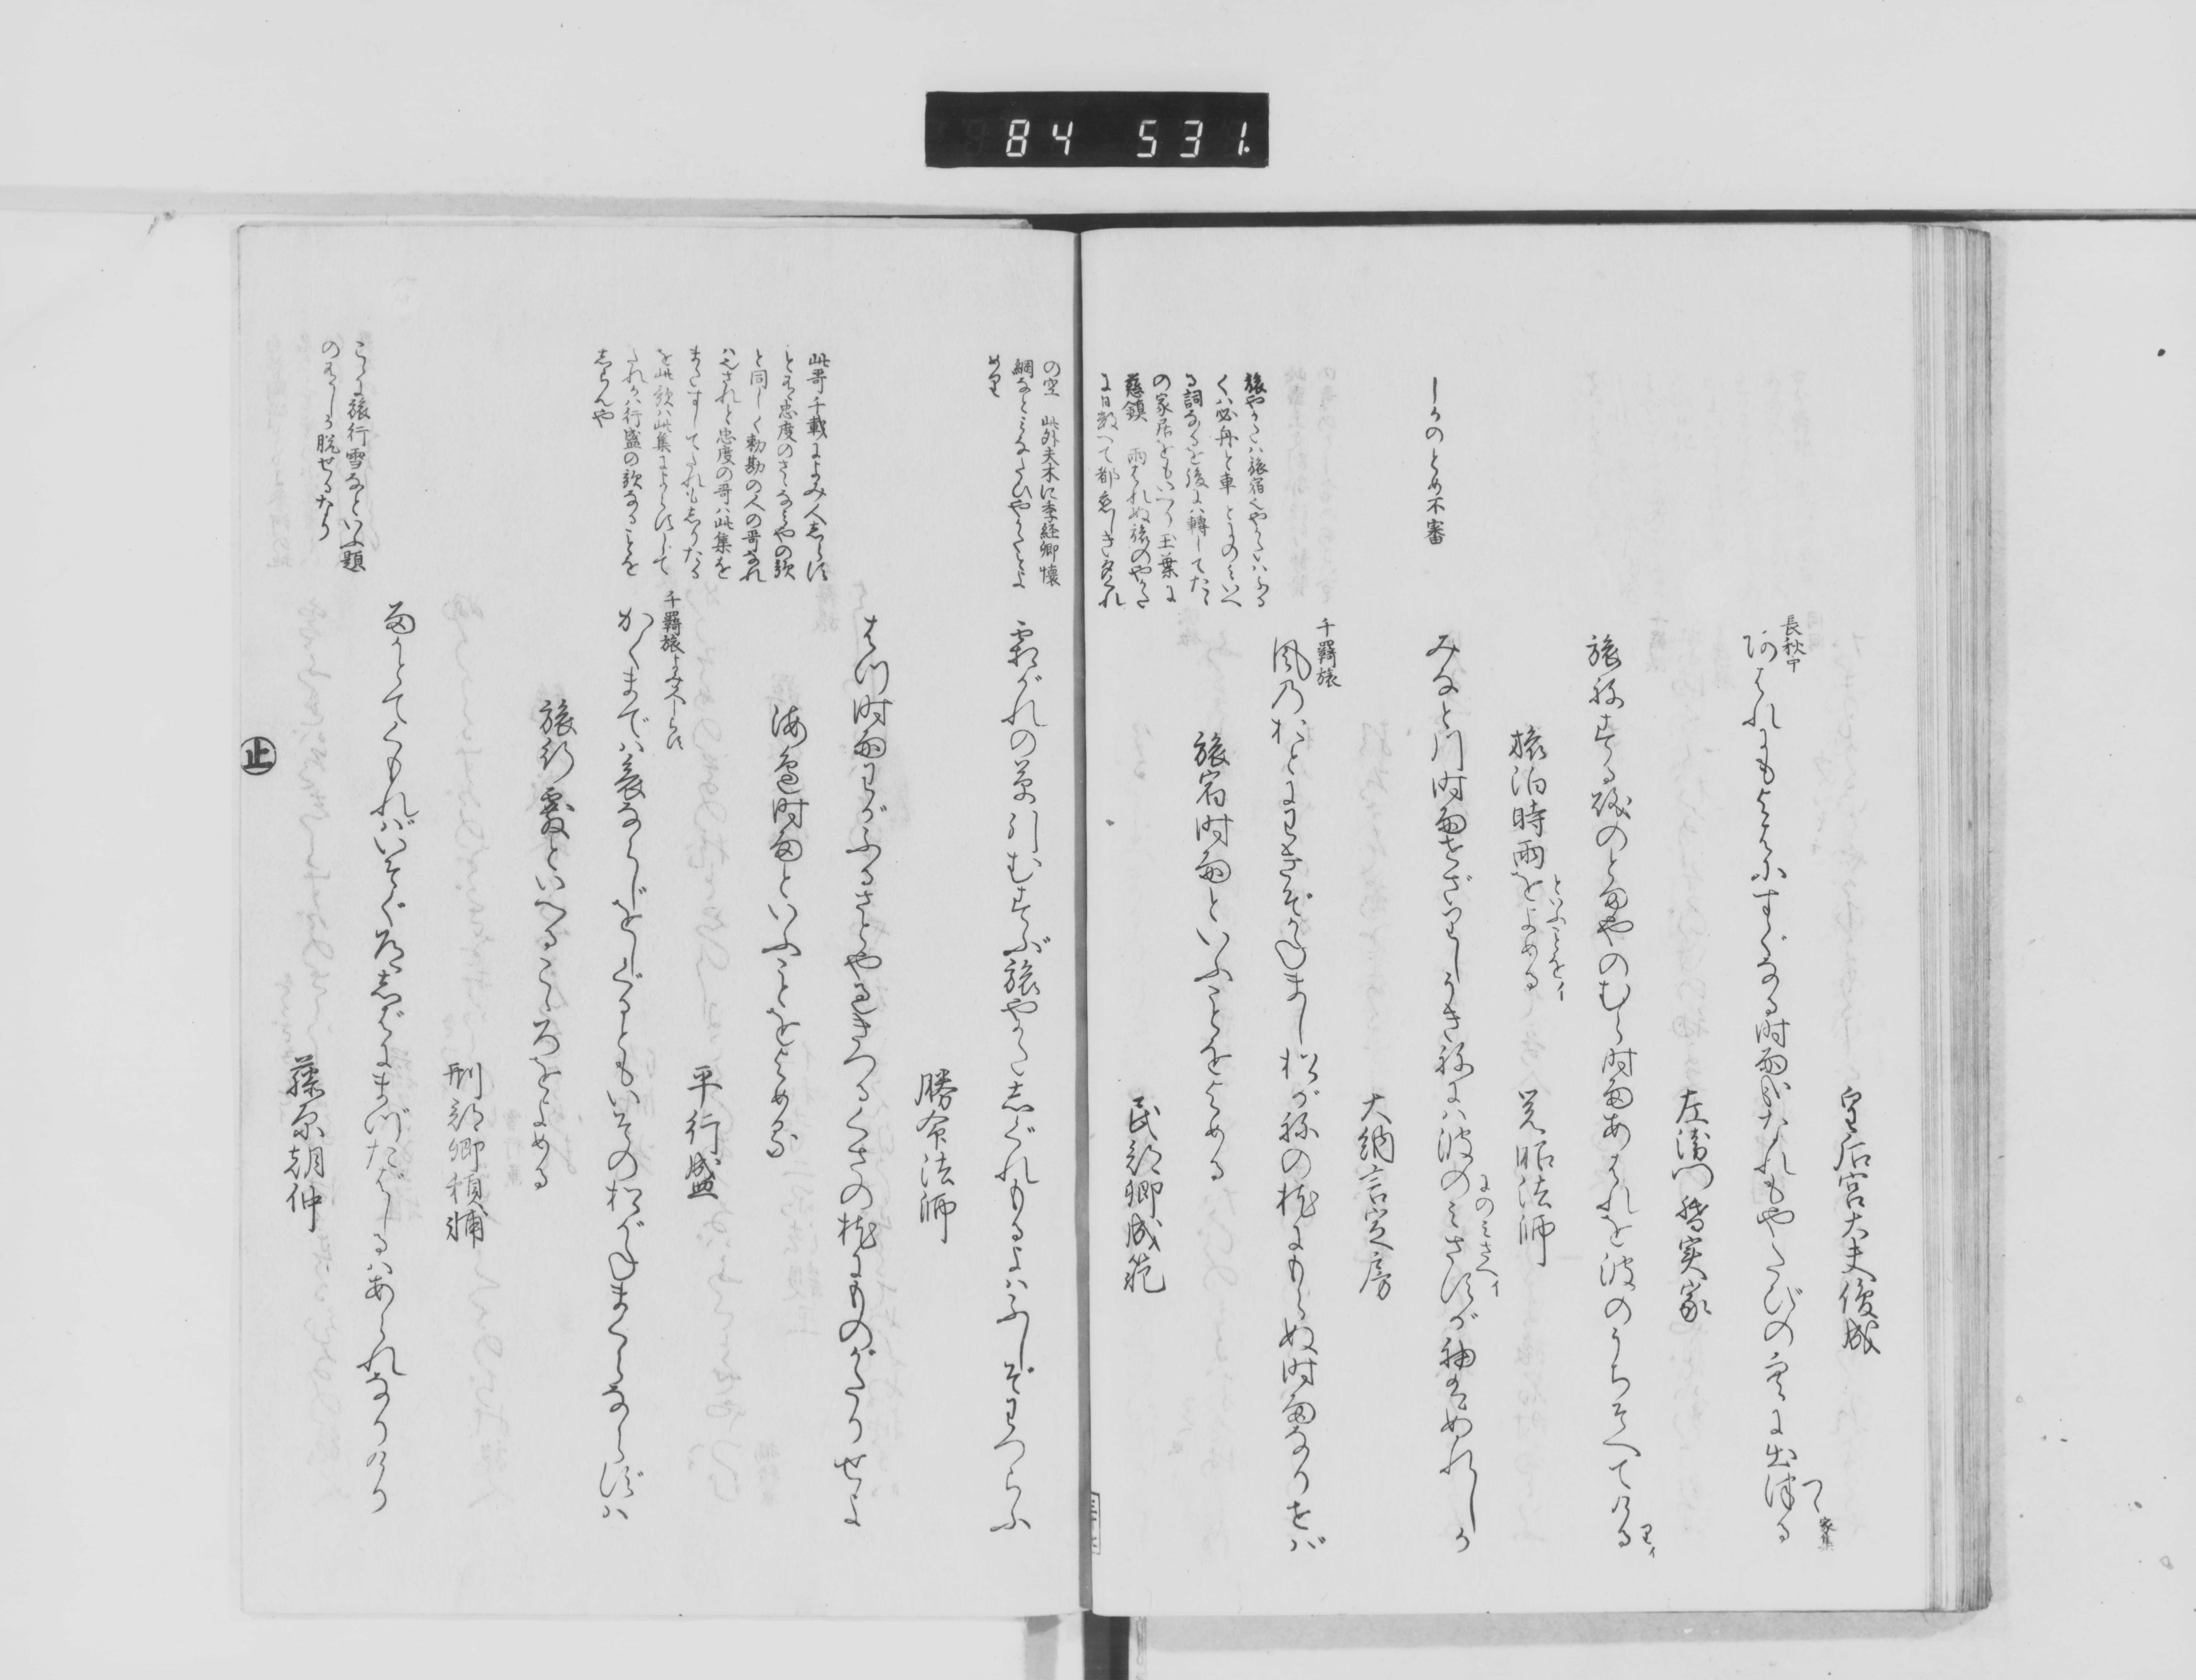 84 531.
皇后宮大夫俊成
長秋中
あはれにもよはにすぐなる時雨かなたれもやたびの空に出つる
て 家集
左衛門督実家
旅ねする磯のとまやのむら時雨あはれを波のうちそへてける
りイ
旅泊時雨をよめる
といふことをイ
覚昭法師
しかのとめ不審
みなと川時雨
うきねには波の
が袖はぬれしか
大納言定房
千羇旅
風のおとにわきぞかねまし松がねの枕にもらぬ時雨なりせば
旅やかたハ旅宿也やかたハふる
くハ必舟と車とにのミいへ
る詞なるを後にハ轉してたゝ
の家居をもいへり玉葉に
慈鎮 雨はれぬ旅のやかた
に日数へて都恋しき夕くれ
旅宿時雨といふことをよめる
民部卿成範
の空 此外夫木に季経卿懐
綱なとミなたひやかたとよ
めり
霜がれの草引むすぶ旅やかたしぐれもるよハふしぞわづらふ
勝命法師
はつ時雨わがふるさとやるきつるくさの枕にものがたりせよ
海邊時雨といふことをよめる
平行盛
此哥千載によみ人しらす
とす忠度のさゝなミやの歌
と同しく勅勘の人の哥なれ
ハ也されと忠度の哥ハ此集を
またすしてたれもしりたる
を此歌ハ此集によらすして
たれかハ行盛の歌なることを
しらんや
千羇旅よみ人しらす
かくまでハ哀ならじをしぐるともいその松がねまくらならずハ
旅行霰といへるこゝろをよめる
刑部卿頼輔
こゝに旅行雪なといふ題
のありしか脱せるなり
雨とてくもればいそぐ
しばにまづたばしるハあられなりけり
藤原朝仲
止